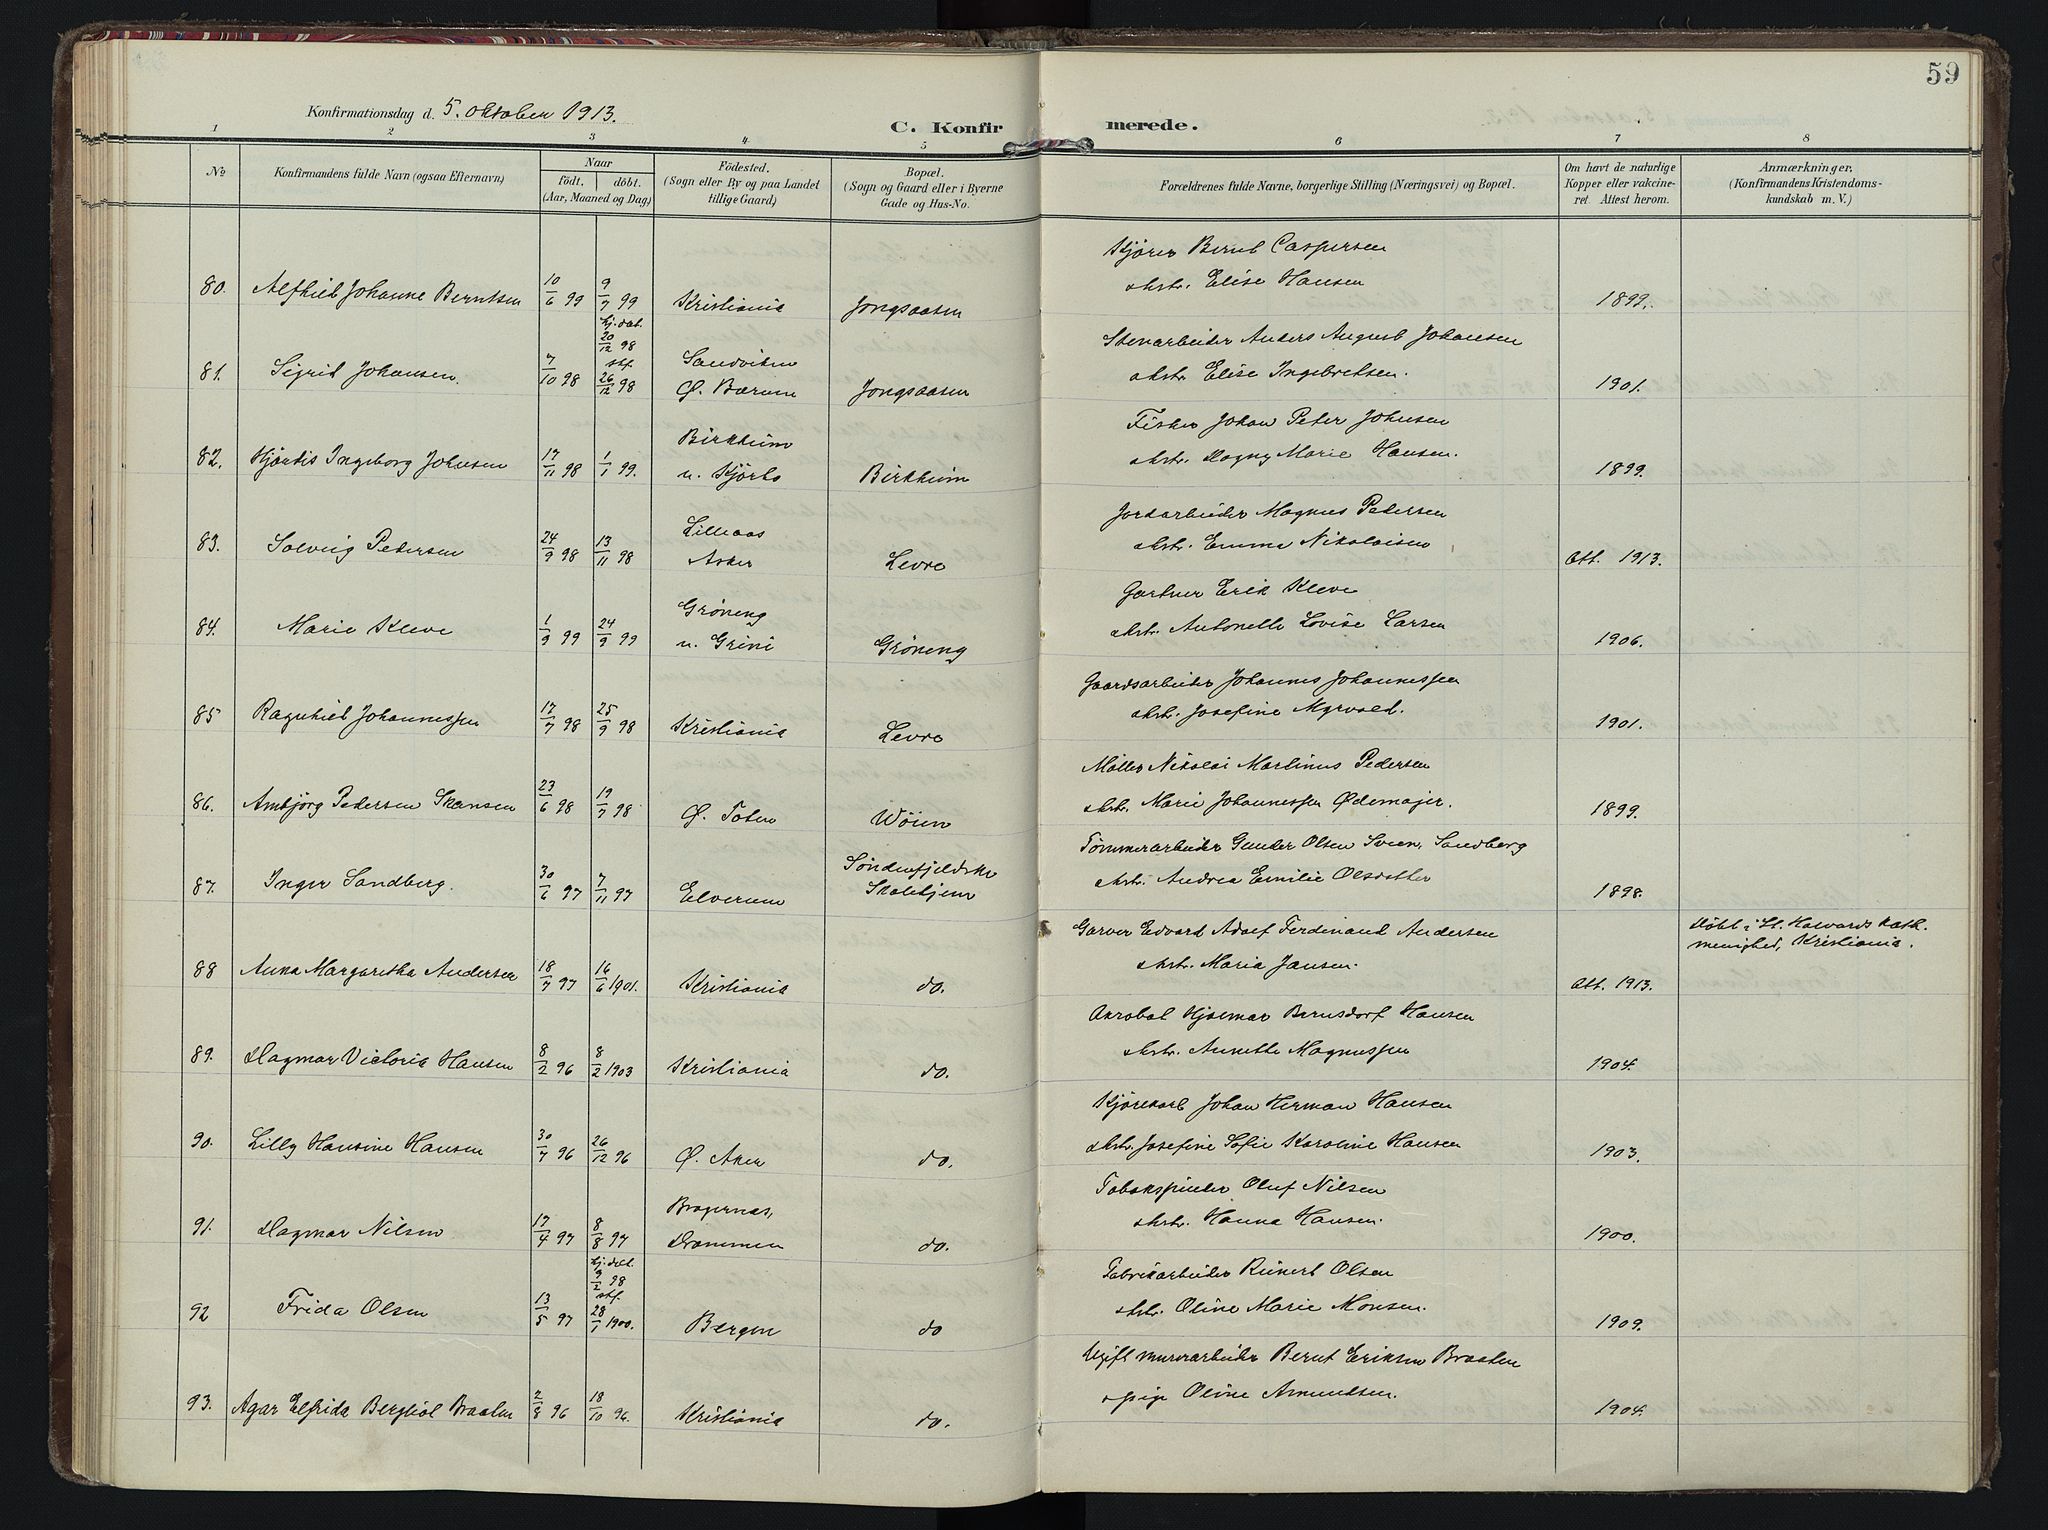 59
Konfirmationsdag d. 5. oktober 1913.
C. Konfirmerede.
1 2 3 4 5 6 7 8
No
Konfirmandens fulde Navn (ogsaa Efternavn)
Naar
födt. döbt.
(Aar, Maaned og Dag)
Födested.
(Sogn eller By og paa Landet
tillige Gaard)
Bopæl.
(Sogn og Gaard eller i Byerne
Gade og Hus-No.
Forældrenes fulde Navne, borgerlige Stilling (Næringsvei) og Bopæl.
Om havt de naturlige
Kopper eller vakcine-
ret. Attest herom.
Anmærkninger,
(Konfirmandens Kristendoms-
kundskab m. V.)
80. Alfhild Johanne Berntsen 10/6 99 9/7 99 Kristiania Jongsaasen
Kjører Bernt Caspersen
& hstr. Elise Hansen
1899.
81. Sigrid Johansen. 7/10 98
hj. døbt.
20/12 98
stf.
26/12 98
Sandviken
Ø. Bærum
Jongsaasen
Stenarbeider Anders August Johansen
& hstr. Elise Ingebretsen.
1901.
82. Hjørdis Ingeborg Johnsen 17/11 98 1/1 99.
Birkheim
u. Kjørbo
Birkheim
Fisker Johan Peter Johnsen
& hstr. Dagny Marie Hansen.
1899.
83. Solveig Pedersen 24/9 98 13/11 98
Lilleaas
Asker
Levre
Jordarbeider Magnus Pedersen
& hstr. Emma Nikolaisen
Att. 1913.
84. Marie Kleve 1/9 99 24/9 99
Grøneng
u. Grini
Grøneng
Gartner Erik Kleve
& hstr. Antonette Lovise Larsen
1906.
85 Ragnhild Johannessen 17/7 98 25/9 98 Kristiania Levre
Gaardsarbeider Johannes Johannessen
& hstr. Josefine Myrvold.
1901.
86. Ambjørg Pedersen Skansen 23/6 98 19/7 98 Ø. Toten Wøien
Møller Nikolai Martinus Pedersen
& hstr. Marie Johannessen Ødemajer.
1899.
87. Inger Sandberg. 30/6 97 7/11 97 Elverum
Søndenfjeldske
Skolehjem
Tømmerarbeider Gunder Olsen Sveen, Sandberg
& hstr. Andrea Emilie Olsdatter
1898.
88 Anna Margaretha Andersen 18/7 97 16/6 1901. Kristiania do.
Garver Edvard Adolf Ferdinand Andersen
& hstr. Maria Jansen.
Att. 1913.
Døbt i St. Halvards kath.
menighed, Kristiania.
89. Dagmar Victoria Hansen 8/2 96 8/2 1903 Kristiania do.
Akrobat Hjalmar Bernsdorf Hansen
& hstr. Annette Magnussen
1904.
90. Lilly Hansine Hansen 30/7 96 26/12 96 Ø. Aker do.
Kjørekarl Johan Herman Hansen
& hstr. Josefine Sofie Karoline Hansen
1903.
91. Dagmar Nilsen 17/4 97 8/8 97
Bragernas,
Drammen
do.
Tobakspinder Oluf Nilsen
& hstr. Hanna Hansen.
1900.
92 Frida Olsen 13/5 97
hj. døbt.
9/2 98
stf.
28/1 1900.
Bergen do
Fabrikarbeider Reinert Olsen
& hstr. Oline Marie Monsen.
1909.
93. Agar Elfrida Bergliot Braaten 2/8 96 18/10 96. Kristiania do.
Ugift murerarbeider Bernt Eriksen Braaten
& pige Oline Amundsen.
1904.